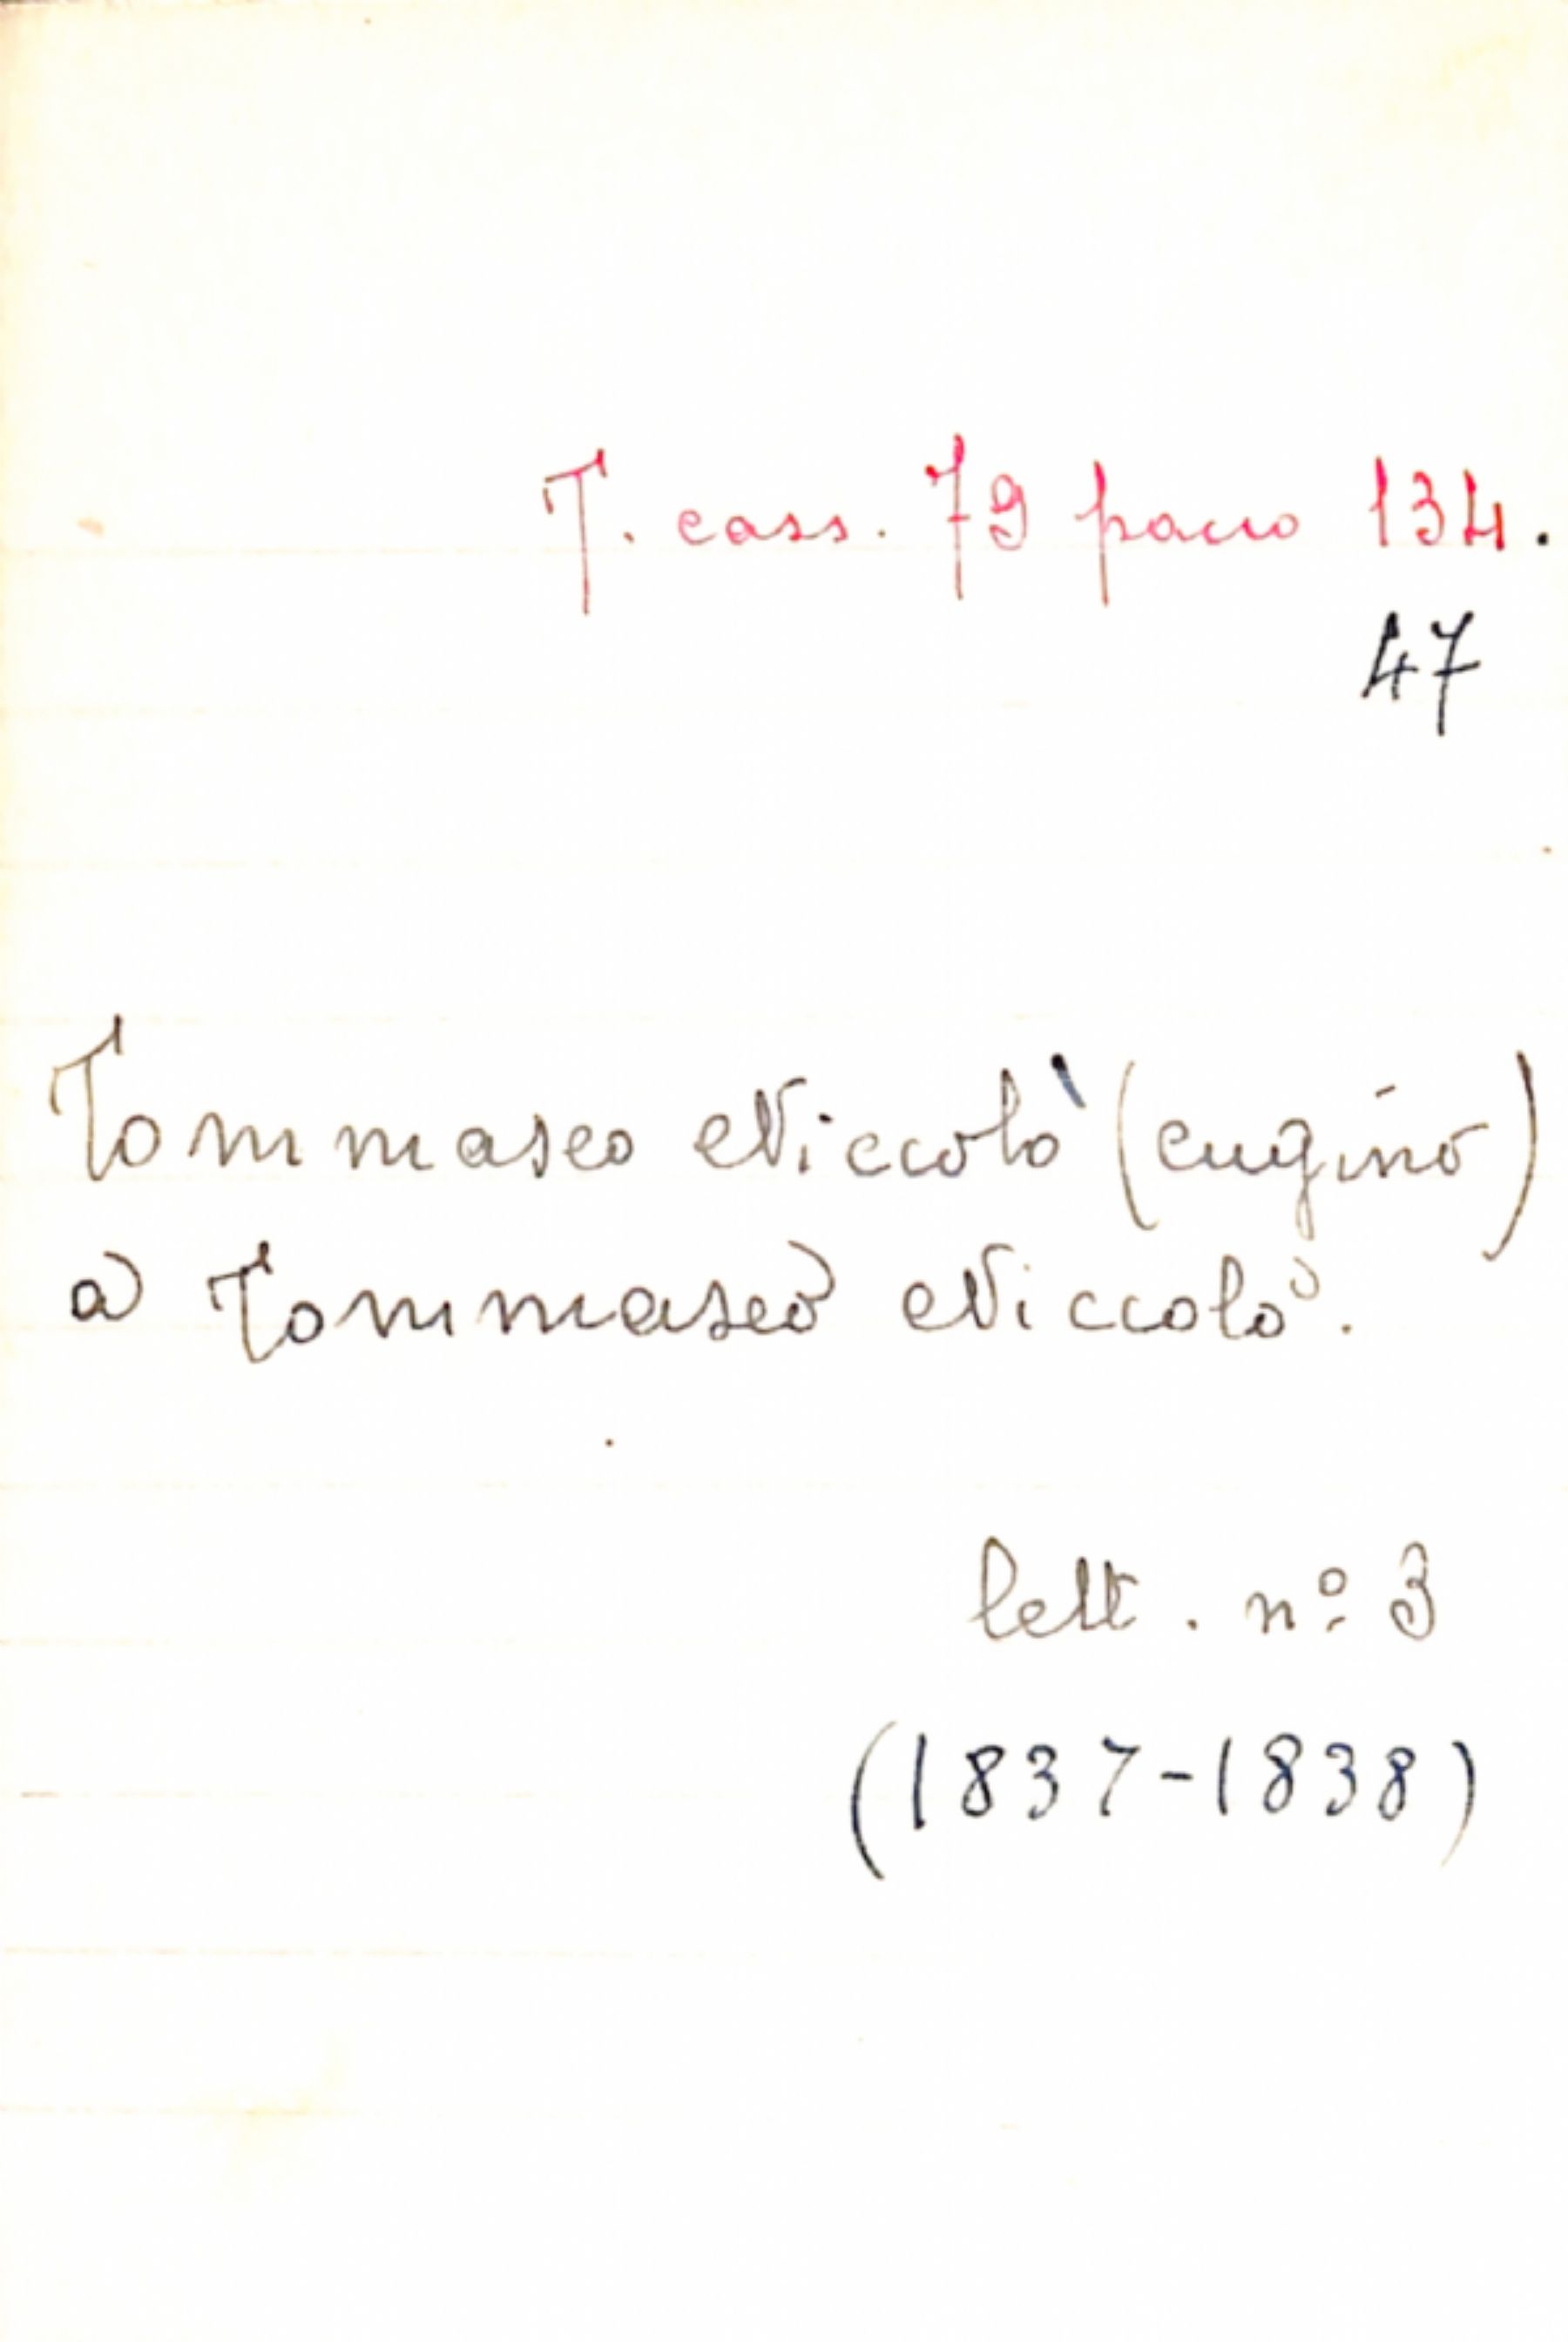 T. cass. 79 pacco 134.
47
Tommaseo Niccolò (cugino)
a Tommaseo Niccolò.
lett. nº 3
(1837-1838)